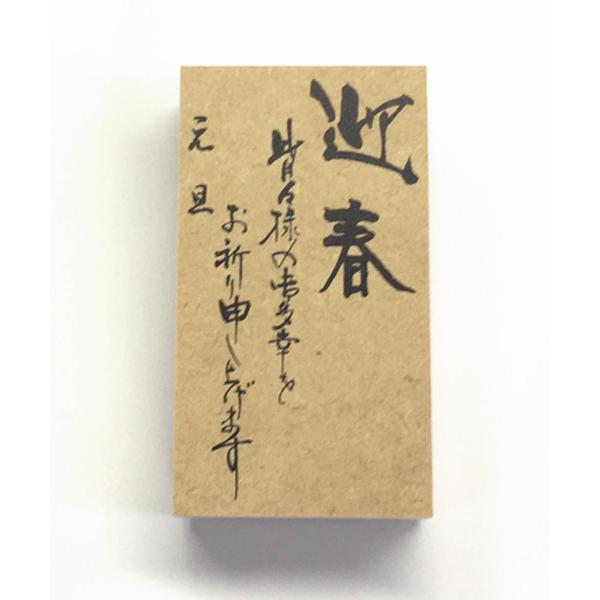 迎春
皆々様の御多幸を
お祈り申し上げます
元旦